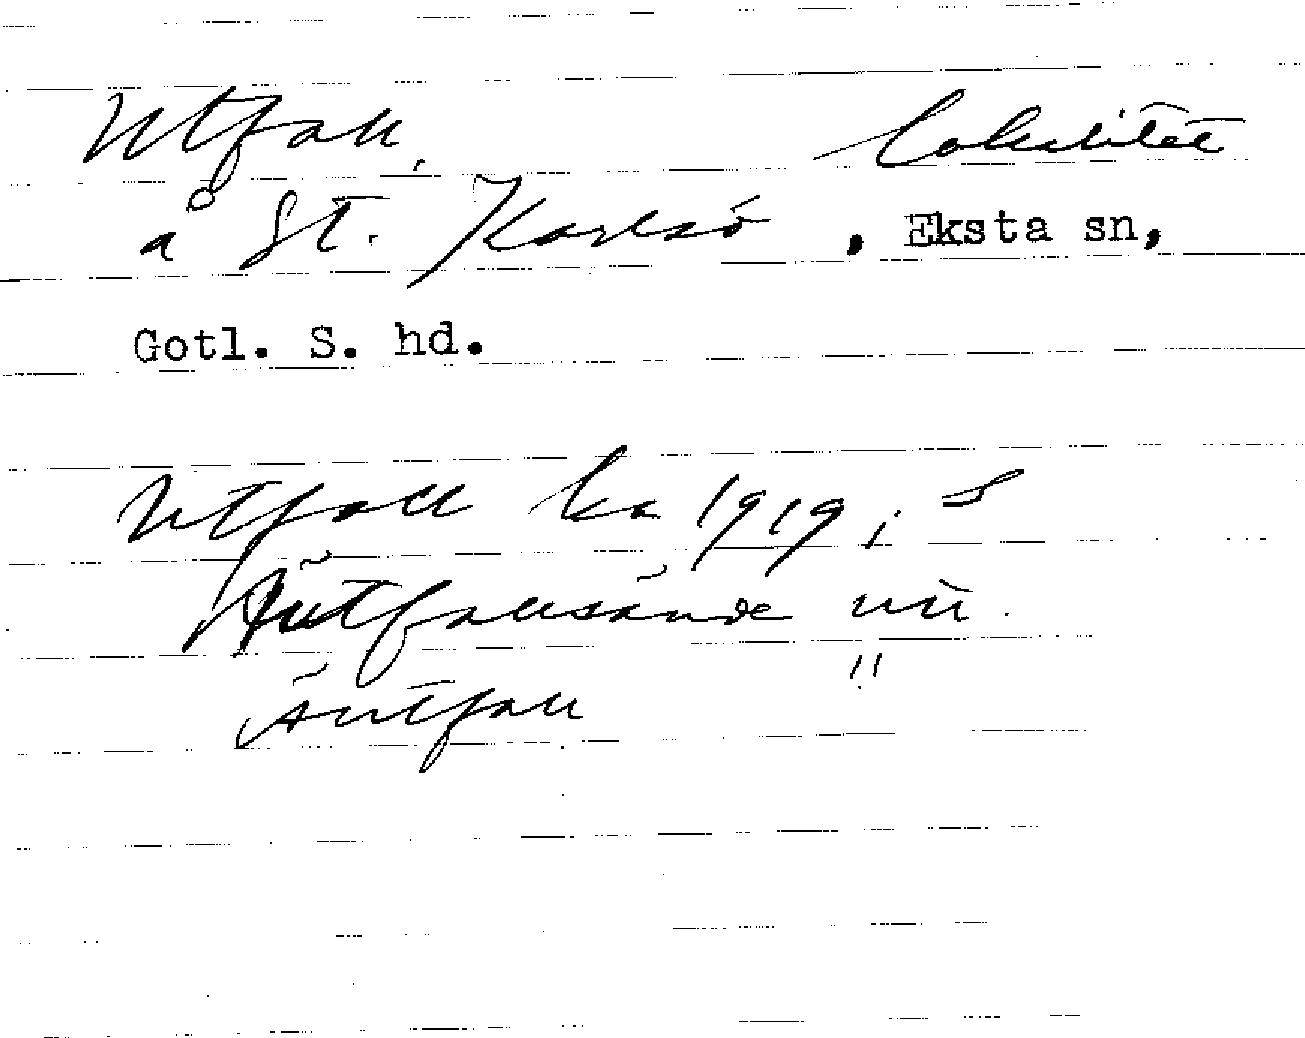 Utfall, lokalitet
å St. Karlsö, Eksta sn,
Gotl. S. hd.
Utfall ka 1919 i
Äutfallsände uu
Äutfall "